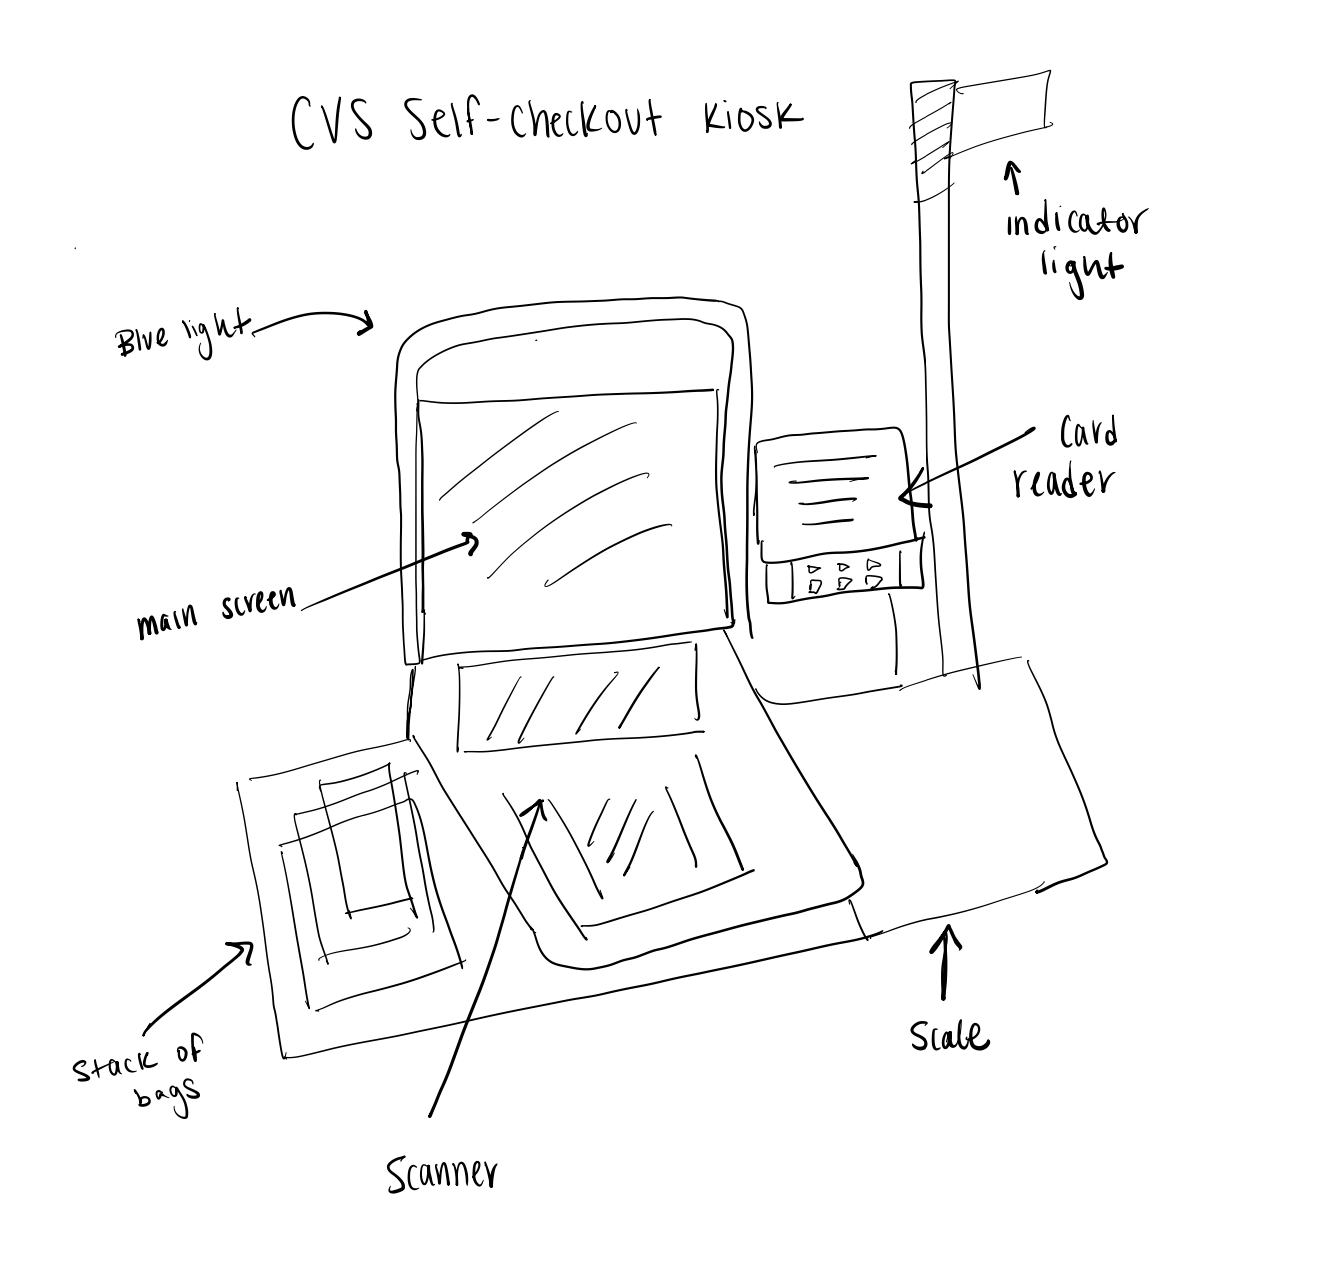 CVS Self-checkout kiosk
indicator
light
Blue light
Card
reader
main screen
Stack of
bags
Scale
Scanner